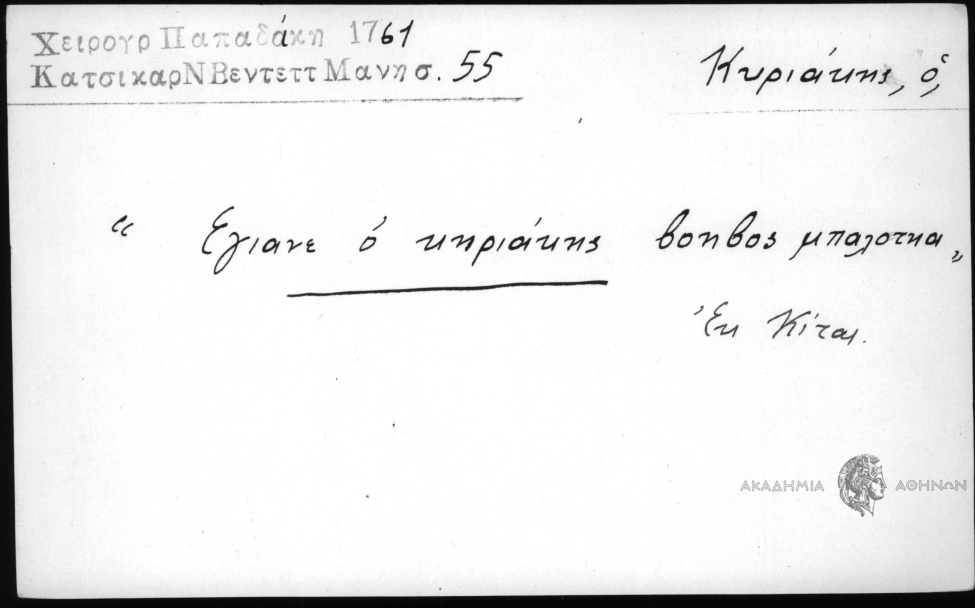 Χειρογρ Παπαδάκη 1761
Κατσικαρ Ν Βεντεττ Μανη σ. 55
Κυριάκης, ὁ,
“ Εγιανε ὁ κηριάκης βοηβος μπαλοτηα „
Ἐκ Κίτας.
ΑΚΑΔΗΜΙΑ ΑΘΗΝΩΝ